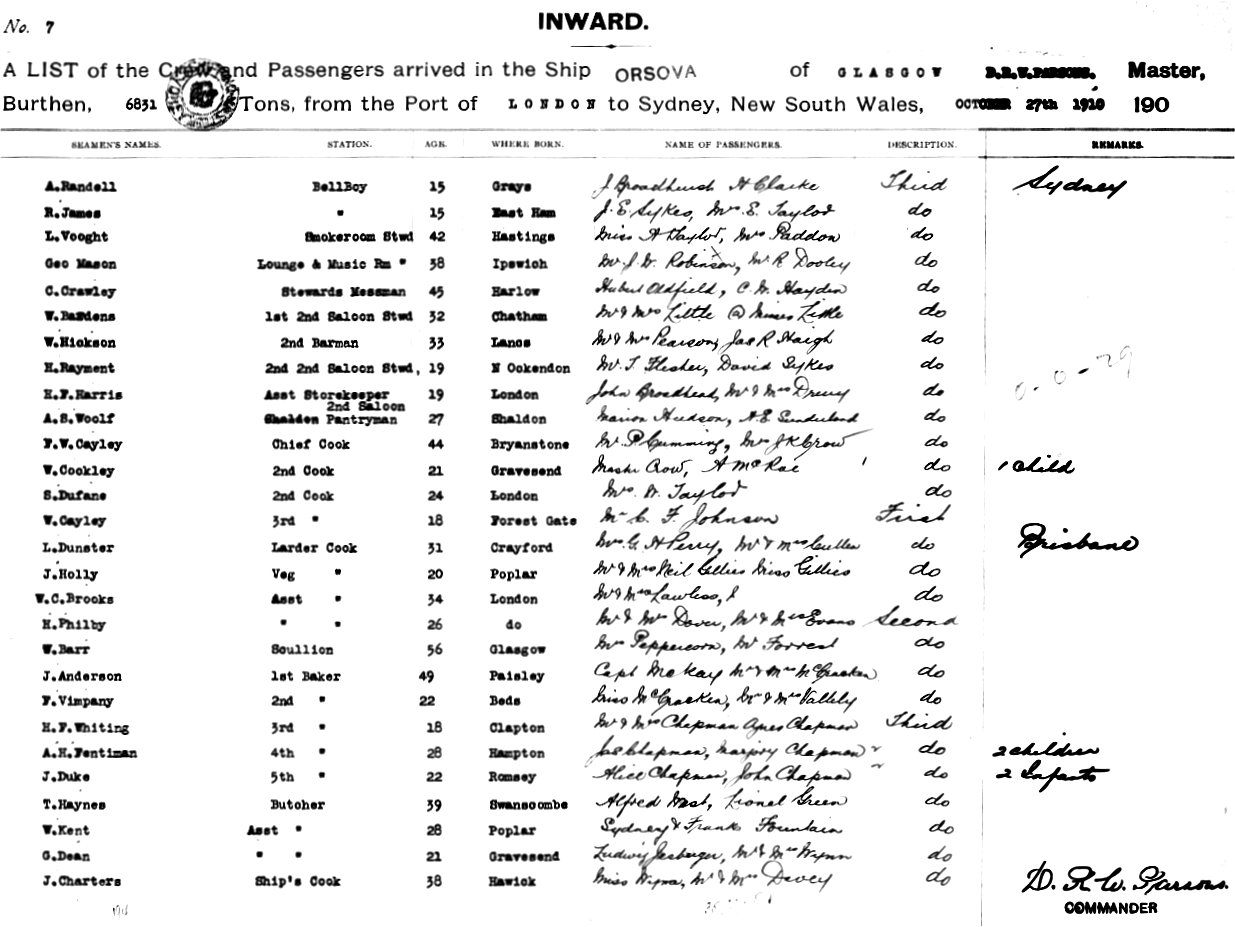 No. 7
INWARD.
A LIST of the Crew and Passengers arrived in the Ship ORSOVA of GLASGOW D.R.W.PARSONS. Master,
Burthen, 6831 Tons, from the Port of LONDON to Sydney, New South Wales, OCTOBER 27th 1910 190
SEAMEN'S NAMES. STATION. AGE. WHERE BORN. NAME OF PASSENGERS. DESCRIPTION. REMARKS.
A.Randell BellBoy 15 Grays J Broadhurst H Clarke Third Sydney
R.James " 15 East Ham J. E. Sykes, Mrs E. Taylor do
L.Vooght Smokeroom Stwd 42 Hastings Miss A Taylor, Mrs Paddon do
Geo Mason Lounge & Music Rm " 38 Ipswich Mr J. W. Robinson, Mr R Dooley do
C.Crawley Stewards Messman 45 Harlow Hubert Oldfield, C. W. Hayden do
W. 1st 2nd Saloon Stwd 32 Chatham Mr & Mrs Little @ Misses Little do
W.Hickson 2nd Barman 33 Lancs Mr & Mrs Pearson, Jas R Haigh do
H.Rayment 2nd 2nd Saloon Stwd, 19 N Ockendon Mr. T. Flesher, David Sykes do
H.F.Harris Asst Storekeeper 19 London John Broadhead, Mr & Mrs Drury do
2nd Saloon
A.S.Woolf Pantryman 27 Shaldon Marion Hudson, H.E. Sunderland do
F.W.Cayley Chief Cook 44 Bryanstone Mr P Cumming, Mrs J K Crow do
W.Cookley 2nd Cook 21 Gravesend Master Crow, A McRae 1 do 1 Child
S.Dufane 2nd Cook 24 London Mrs. W. Taylor do
W.Cayley 3rd " 18 Forest Gate Mr C. F. Johnson First
L.Dunster Larder Cook 31 Crayford Mrs G. H Perry, Mr & Mrs Cullen do Brisbane
J.Holly Veg " 20 Poplar Mr & Mrs Neil Gillies Miss Gillies do
W.C.Brooks Asst " 34 London Mr & Mrs Lawless, do
H.Philby " " 26 do Mr & Mrs Dover, Mr & Mrs Evans Second
W.Barr Scullion 56 Glasgow Mrs Peppercorn, Mr Forrest do
J.Anderson 1st Baker 49 Paisley Capt McKay Mr & Mrs McCracken do
F.Vimpany 2nd " 22 Beds Miss McCracken, Mr & Mrs Vallely do
H.F.Whiting 3rd " 18 Clapton Mr & Mrs Chapman Agnes Chapman Third
A.H.Fentiman 4th " 28 Hampton Jas Chapman, Marjory Chapman do 2 children
J.Duke 5th " 22 Romsey Alice Chapman, John Chapman do 2 Infants
T.Haynes Butcher 39 Swanscombe Alfred West, Lionel Green do
W.Kent Asst " 28 Poplar Sydney & Frank Fountain do
G.Dean " " 21 Gravesend Ludwig Mr & Mrs Wynn do
J.Charters Ship's Cook 38 Hawick Miss Mr & Mrs Davey do D. R. W. Parsons.
COMMANDER